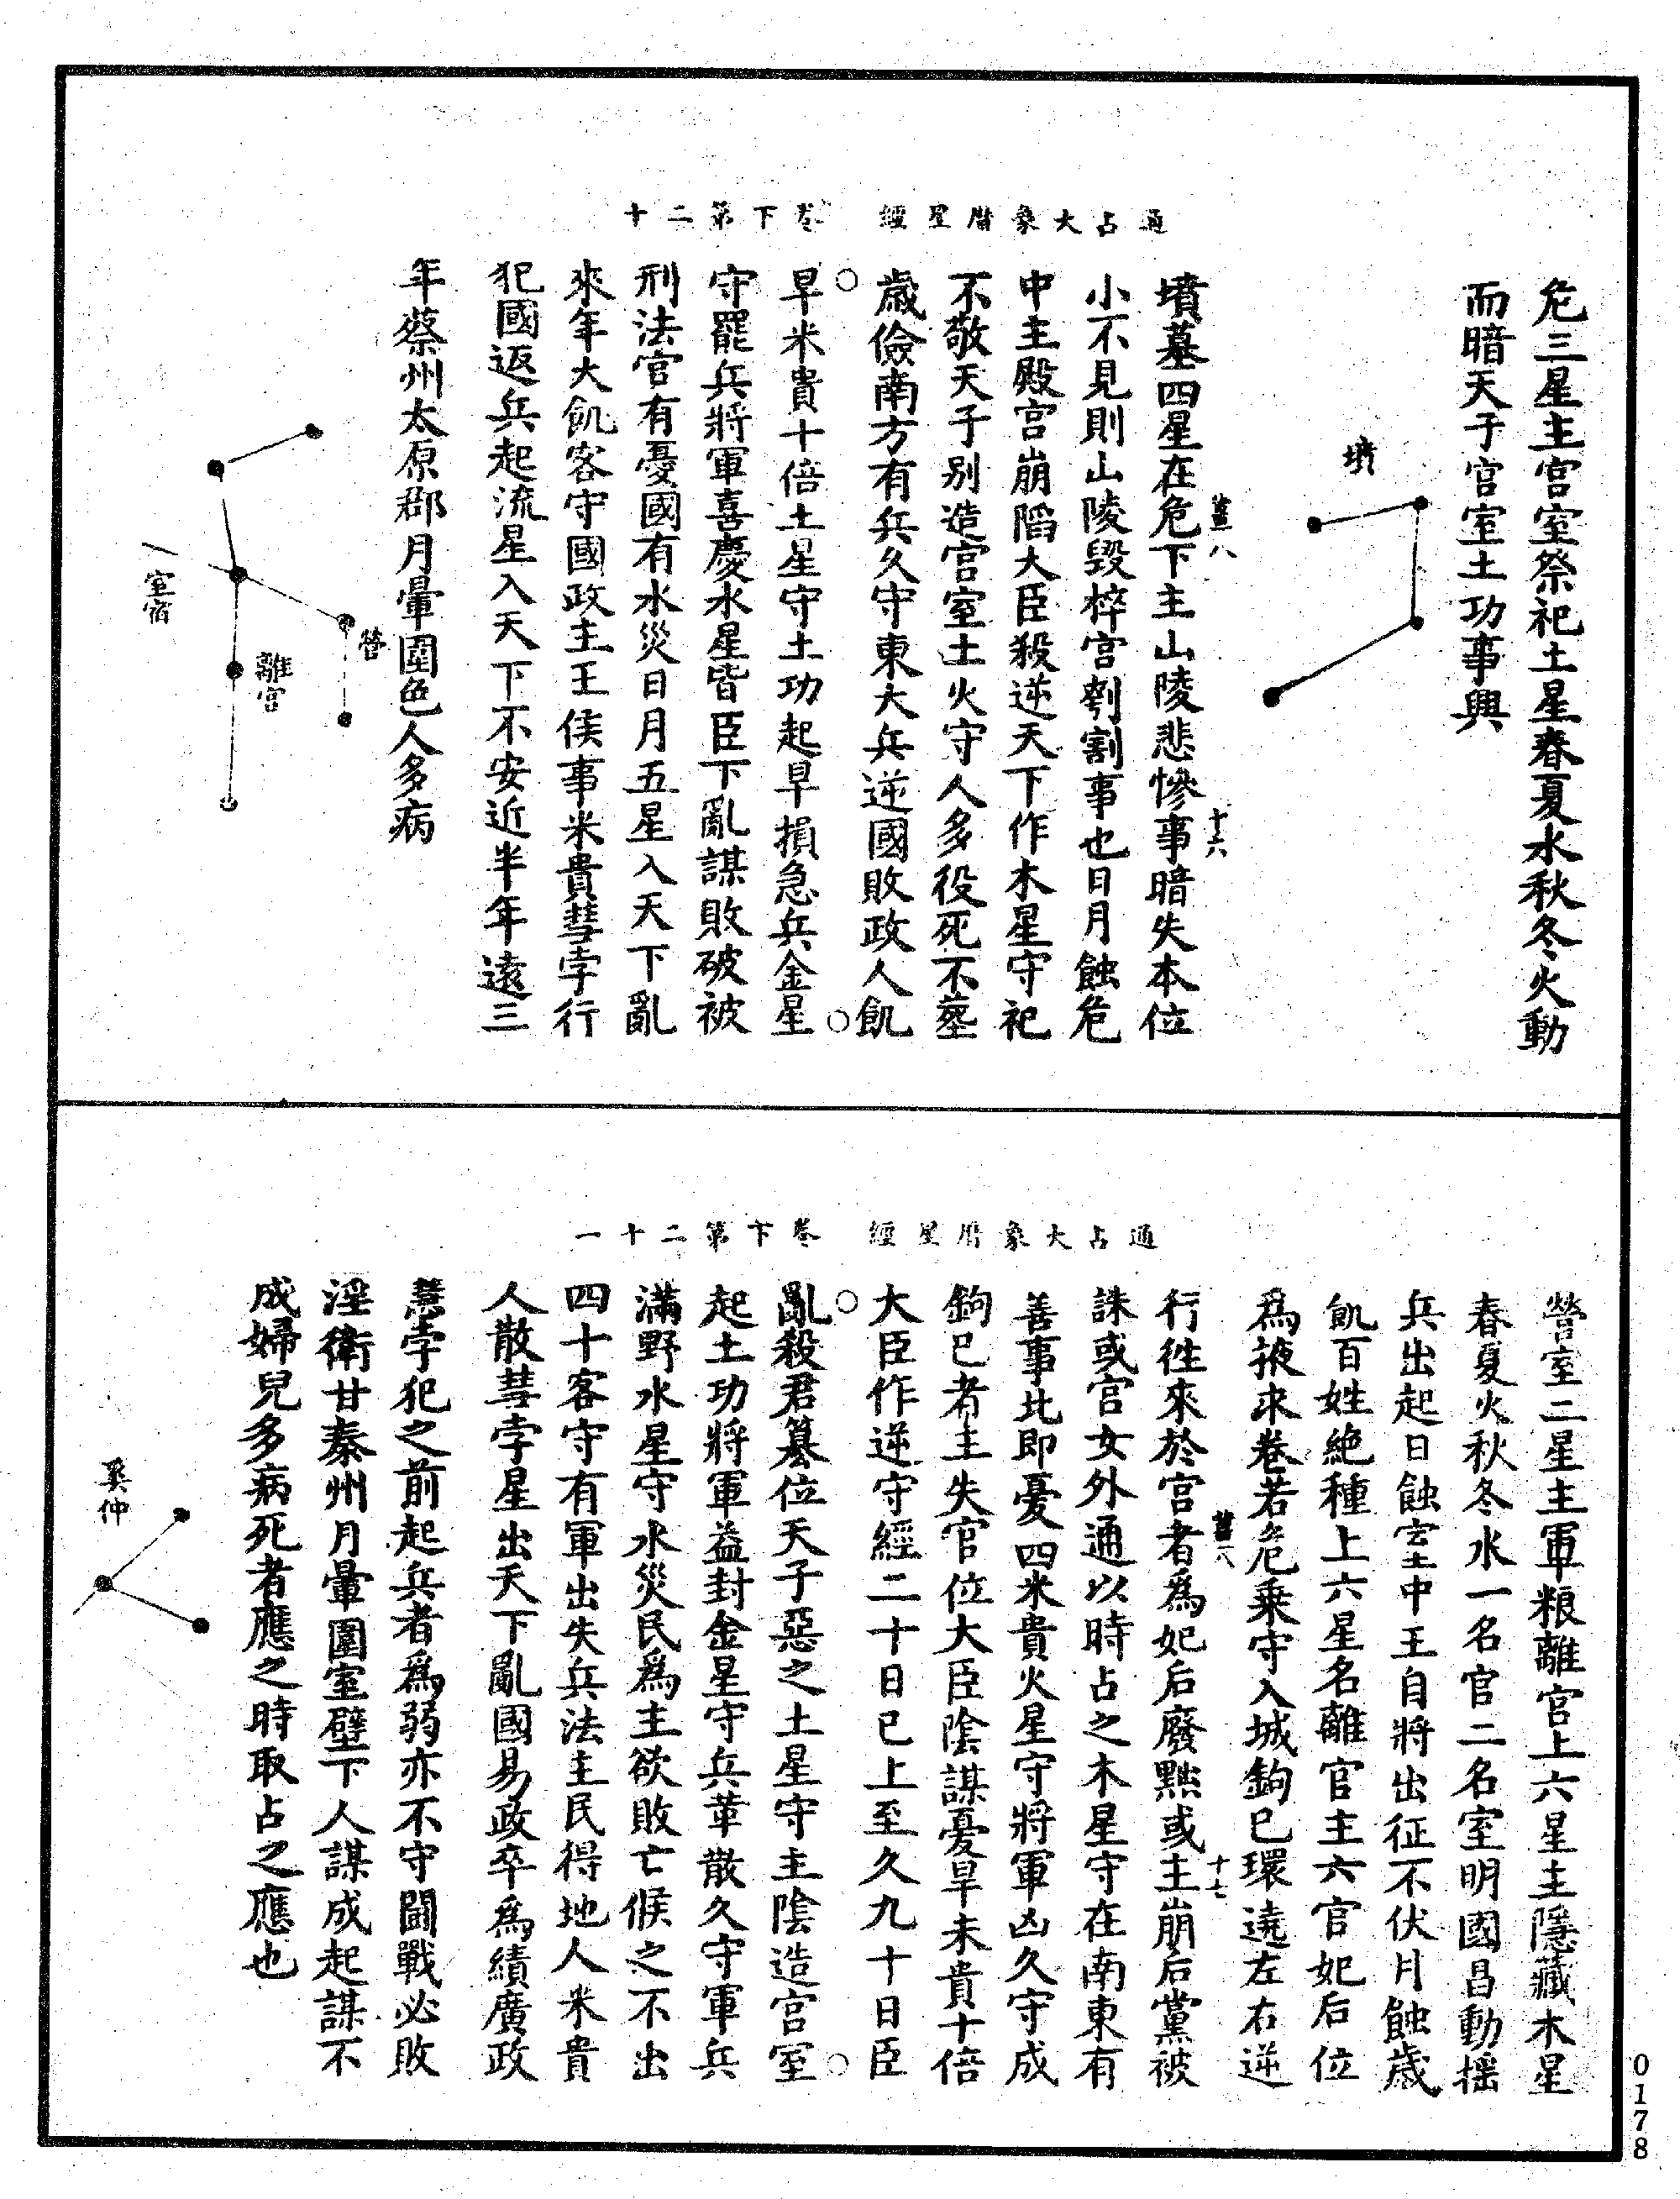 危三星主宮室祭祀土星春夏水秋冬火動
而暗天子官室土功事興
墳
墳墓四星在危下主山陵悲慘事暗失本位
小不見則山陵毀梓宮刳割事也日月蝕危
中主殿宮崩陷大臣殺逆天下作木星守祀
不敬天子别造宮室土火守人多役死不塟
歲儉南方有兵久守東大兵逆國敗政人飢
通占大象曆星經 卷下第二十
旱米貴十倍土星守土功起旱損急兵金星
守罷兵將軍喜慶水星皆臣下亂謀敗破被
刑法官有憂國有水災日月五星入天下亂
來年大飢客守國政主王侯事米貴彗孛行
犯國返兵起流星入天下不安近半年遠三
年蔡州太原郡月暈圍色人多病
營
離宮
室宿
營室二星主軍粮離宮上六星主隱藏木星
春夏火秋冬水一名官二名室明國昌動揺
兵出起日蝕室中王自將出征不伏月蝕歲
飢百姓絶種上六星名離官主六官妃后位
爲掖求卷若危乗守入城鉤巳環遶左右逆
行徃來於宮者爲妃后廢黜或主崩后黨被
誅或宮女外通以時占之木星守在南東有
善事此即憂四米貴火星守將軍凶久守成
鉤巳者主失官位大臣陰謀憂旱未貴十倍
大臣作逆守經二十日已上至久九十日臣
通占大象曆星經 卷下第二十一
亂殺君簒位天子惡之土星守主陰造宮室
起土功將軍益封金星守兵革散久守軍兵
滿野水星守水災民爲主欲敗亡候之不出
四十客守有軍出失兵法主民得地人米貴
人散彗孛星出天下亂國易政卒爲績廣政
慧孛犯之前起兵者爲弱亦不守鬪戰必敗
淫衛甘秦州月暈圍室壁下人謀成起謀不
成婦兒多病死者應之時取占之應也
奚仲
0178